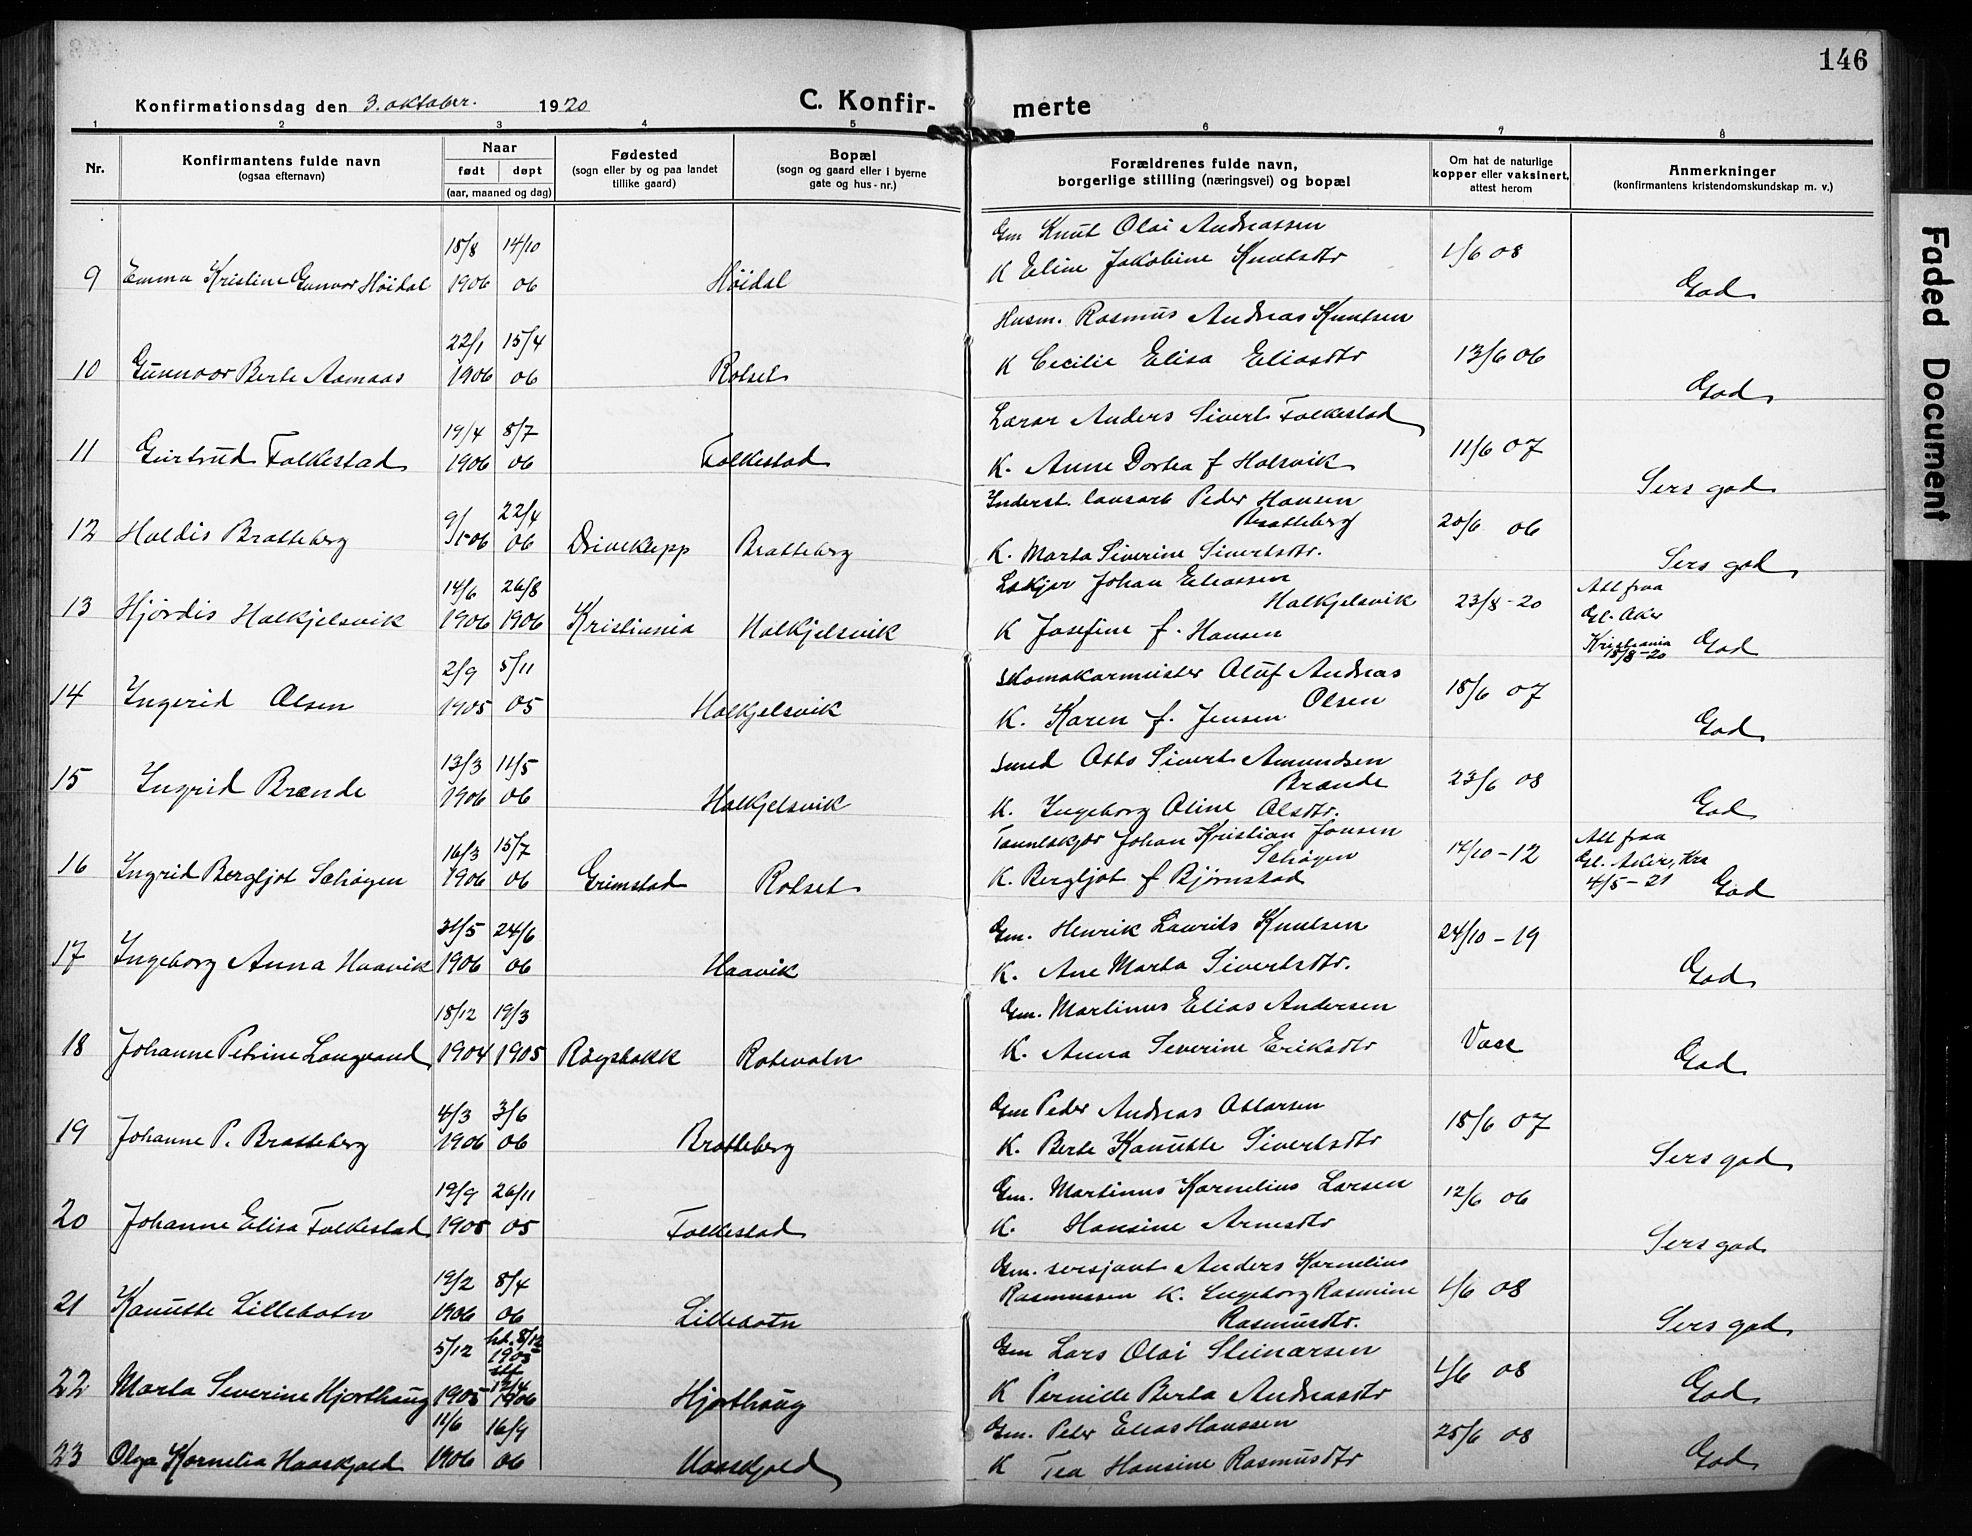 146
Konfirmationsdag den 3. oktober. 1920
C. Konfir- merte
1 2 3 4 5 6 7 8
Nr.
Konfirmantens fulde navn
(ogsaa efternavn)
Naar
født døpt
(aar, maaned og dag)
Fødested
(sogn eller by og paa landet
tillike gaard)
Bopæl
(sogn og gaard eller i byerne
gate og hus-nr.)
Forældrenes fulde navn,
borgerlige stilling (næringsvei) og bopæl
Om hat de naturlige
kopper eller vaksinert,
attest herom
Anmerkninger
(konfirmantens kristendomskundskap m. v.)
Faded Document
15/8 14/10 Gm Knut Olai Andreassen
9 Emma Kristine Gunvor Höidal 1906 06 Höidal K Eline Jakobine Knutsdtr 1/6 08 God
22/1 15/4 Husm. Rasmus Andreas Knutsen
10 Gunnvor Berte Aamaas 1906 06 Rotset K Cecilie Elisa Eliasdtr 13/6 06 God
19/4 8/7 Lærar Anders Sivert Folkestad
11 Gurtrud Folkestad 1906 06 Folkestad K. Anne Dortea f Halsvik 11/6 07 Sers god
9/ 22/4 Inderst. Peder Hansen
Bratteberg
12 Haldis Bratteberg 1-06 06 Driveklepp Bratteberg K. Marta Siverine Sivertsdtr. 20/6 06 Sers god
14/6 26/8 Johan Eliassen
Halkjelsvik
13 Hjørdis Halkjelsvik 1906 1906 Kristiania Halkjelsvik K Josefine f. Hansen 23/8-20
Att fraa
Gl. Aker
Kristiania
18/8-20 God
2/9 5/11 Skomakarmeister Oluf Andreas
Olsen
14 Ingerid Olsen 1905 05 Halkjelsvik K. Karen f. Jensen 18/6 07 God
13/3 11/5 Smed Otto Sivert Amundsen
Brænde
15 Ingrid Brænde 1906 06 Halkjelsvik K. Ingeborg Oline Olsdtr. 23/6 08 God
16/3 15/7 Johan Kristian Jonsen
Schøgen
16 Ingrid Bergljot Schøgen 1906 06 Grimstad Rotset K. Bergljot f Bjørnstad 17/10-12
Att fraa
Gl. Aker, Kra
4/5-21 God
31/5 24/6 Gm. Henrik Laurits Knutsen
17 Ingeborg Anna Haavik 1906 06 Haavik K. Ane Marta Sivertsdtr. 24/10-19 God
18/12 19/3 Gm. Martinus Elias Andersen
18 Johanne Petrine Langvand 1904 1905 Røystakk Rotevatn K. Anna Severine Eriksdtr Vacc God
4/3 3/6 Gm Peder Andreas Ottarsen
19 Johanne P. Bratteberg 1906 06 Bratteberg K. Berte Kanutte Sivertsdtr 18/6 07 Sers god
19/9 26/11 Gm. Martinus Kornelius Larsen
20 Johanne Elisa Folkestad 1905 05 Folkestad K. Hansine Arnesdtr 12/6 06 Sers god
19/2 8/4 Gm. sersjant Anders Kornelius
21 Kanutte Lillebotn 1906 06 Lillebotn Rasmussen K. Ingeborg Rasmine
Rasmusdtr. 1/6 08 Sers god
5/12 hd. 8/12
1905
Gm Lars Olai Steinarsen
22 Marta Severine Hjorthaug 1905 1906 Hjorthaug K Pernille Berta Andreasdtr 1/6 08 God
11/6 16/9 Gm. Peder Elias Hanssen
23 Olga Kornelia Haaskjold 1906 06 Haaskjold K Tea Hansine Rasmusdtr 25/6 08 God